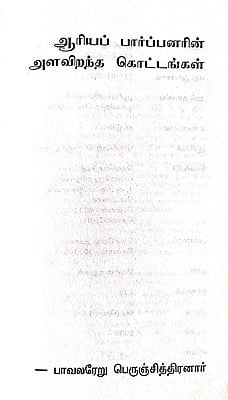 ஆரியப் பார்ப்பனரின்
அளவிறந்த கொட்டங்கள்
— பாவலரேறு பெருஞ்சித்திரனார்